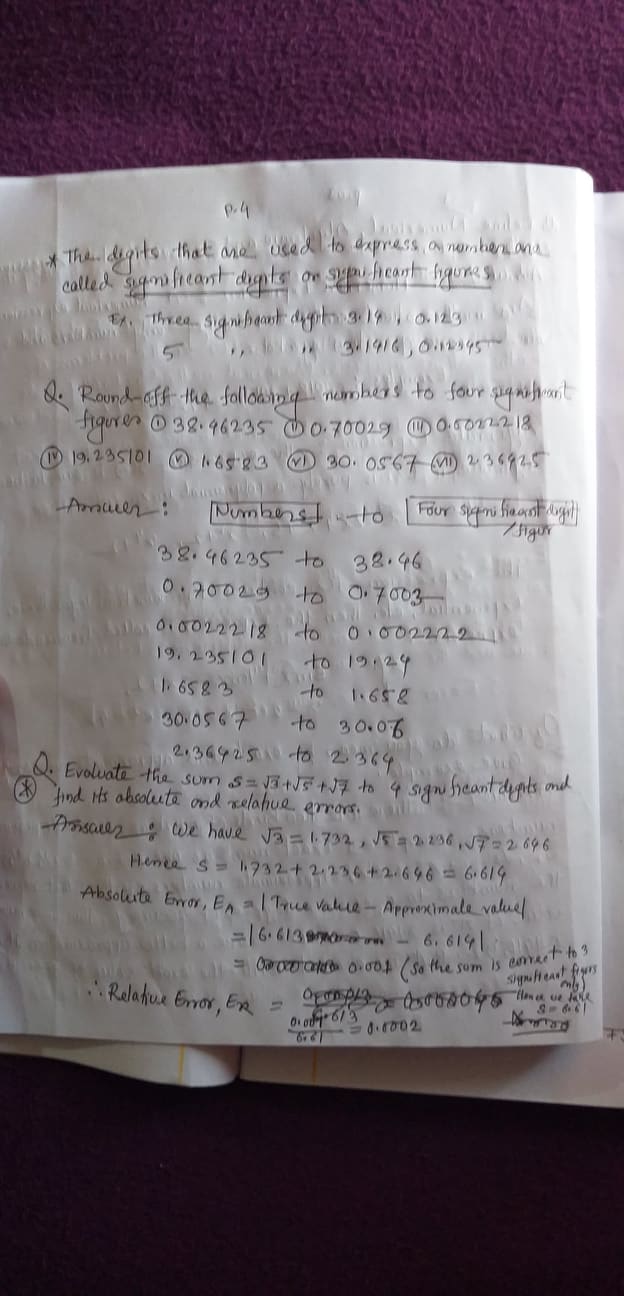 P.4
* The digits that are used to express a number are
called significant digits or significant figures.
Ex. Three significant digits 3.14, 0.123
5 ,, ,, 3.1416, 0.12345
Q. Round-off the following numbers to four significant
figures (i) 38.46235 (ii) 0.70029 (iii) 0.0022218
(iv) 19.235101 (v) 1.6583 (vi) 30.0567 (vii) 2.36425
Answer: Numbers to Four significant digit
/figur
38.46235 to 38.46
0.70029 to 0.7003
0.0022218 to 0.002222
19.235101 to 19.24
1.6583 to 1.658
30.0567 to 30.06
2.36425 to 2.364
Q. Evaluate the sum S = √3+√5+√7 to 4 significant digits and
* find its absolute and relative errors.
Answer: We have √3 = 1.732, √5 = 2.236, √7 = 2.646
Hence S = 1.732 + 2.236 + 2.646 = 6.614
Absolute Error, E_A = | True value – Approximate value |
= |6.613 – 6.614|
= 0.001 (So the sum is correct to 3
significant figures
only)
Hence we take
S = 6.61
∴ Relative Error, E_R =
0.001/6.61 = 0.0002